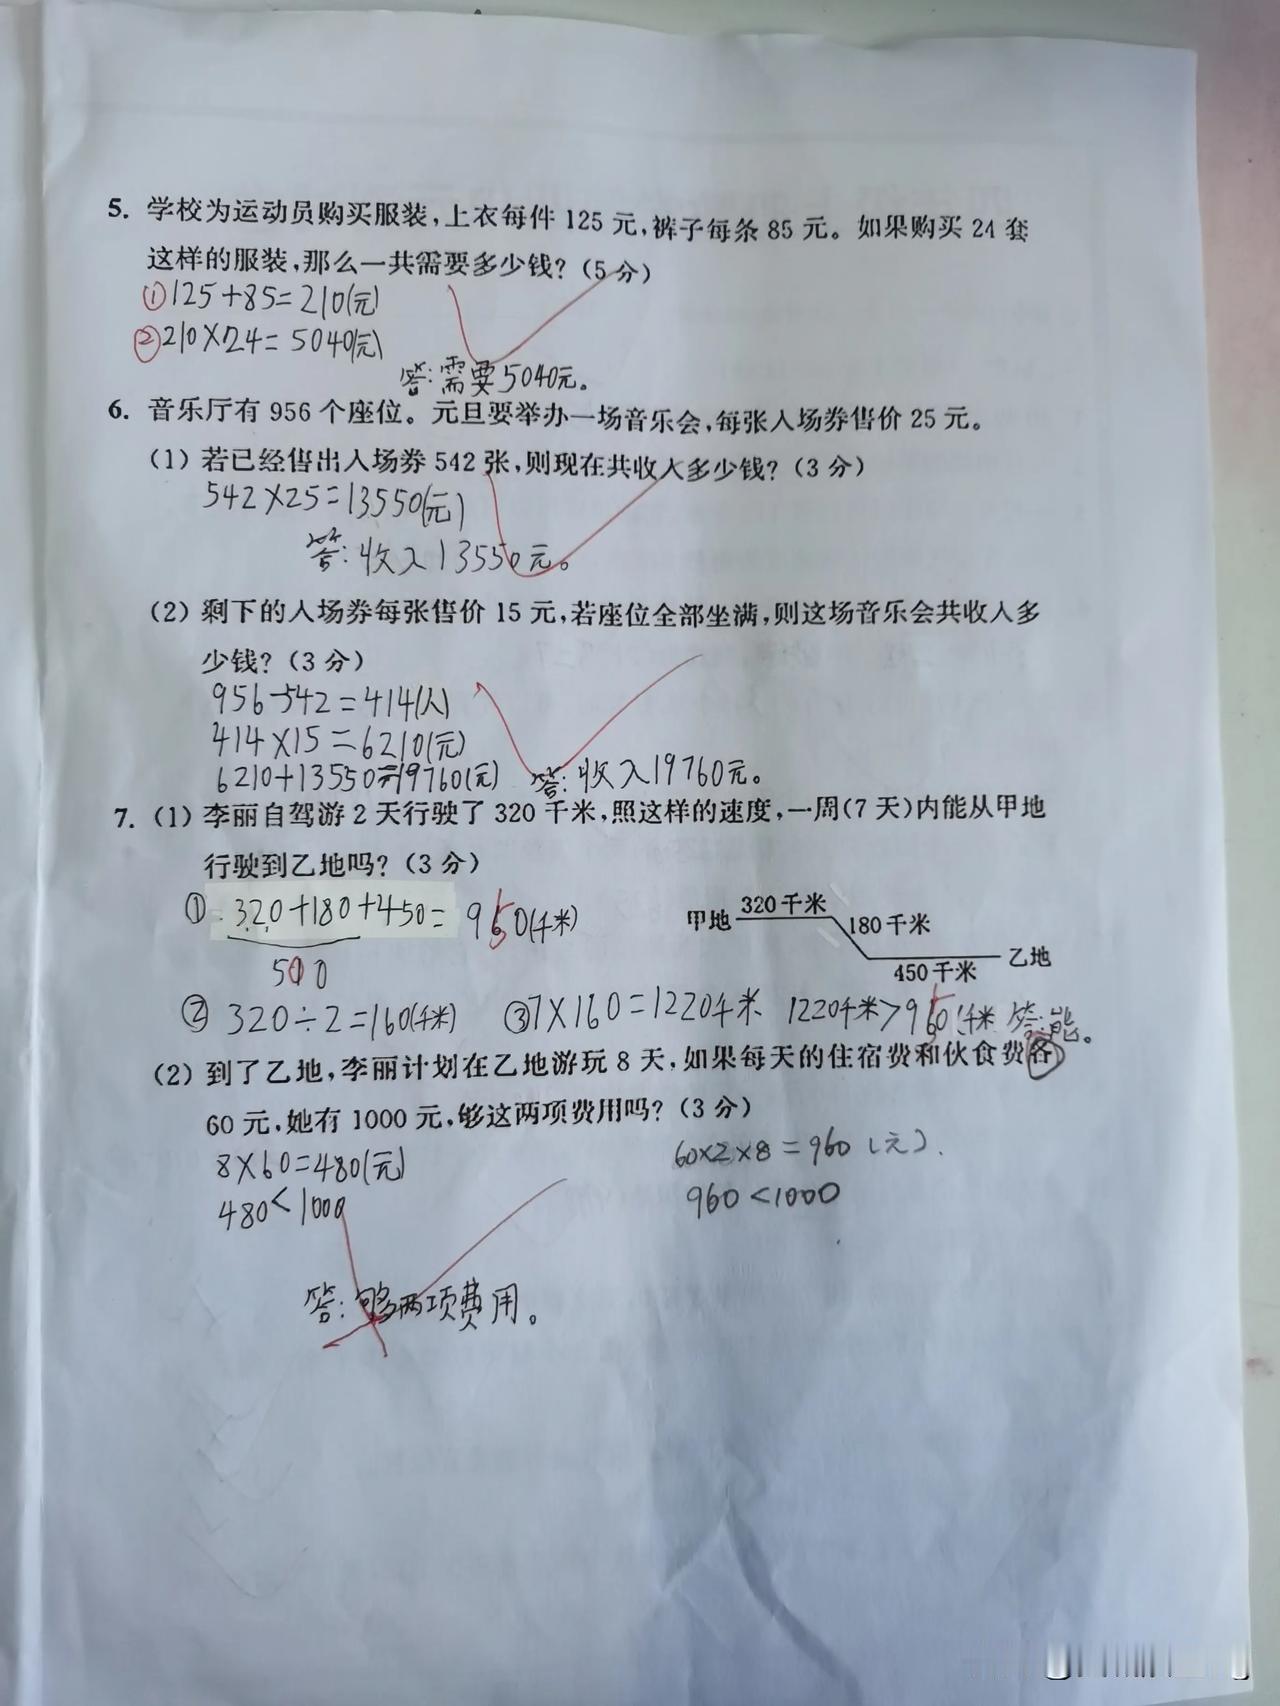 5. 学校为运动员购买服装,上衣每件 125 元,裤子每条 85 元。如果购买 24 套
这样的服装,那么一共需要多少钱?(5 分)
①125+85=210(元)
②210×24=5040(元)
答:需要5040元。
6. 音乐厅有 956 个座位。元旦要举办一场音乐会,每张入场券售价 25 元。
(1) 若已经售出入场券 542 张,则现在共收入多少钱?(3 分)
542×25=13550(元)
答:收入13550元。
(2) 剩下的入场券每张售价 15 元,若座位全部坐满,则这场音乐会共收入多
少钱?(3 分)
956-542=414(人)
414×15=6210(元)
6210+13550=19760(元) 答:收入19760元。
7. (1) 李丽自驾游 2 天行驶了 320 千米,照这样的速度,一周(7 天)内能从甲地
行驶到乙地吗?(3 分)
① 320+180+450=950(千米)
500
甲地 320千米 180千米 450千米 乙地
② 320÷2=160(千米) ③7×160=1220千米 1220千米>950千米 答:能。
(2) 到了乙地,李丽计划在乙地游玩 8 天,如果每天的住宿费和伙食费各
60 元,她有 1000 元,够这两项费用吗?(3 分)
8×60=480(元) 60×2×8=960(元).
480<1000 960<1000
答:够两项费用。